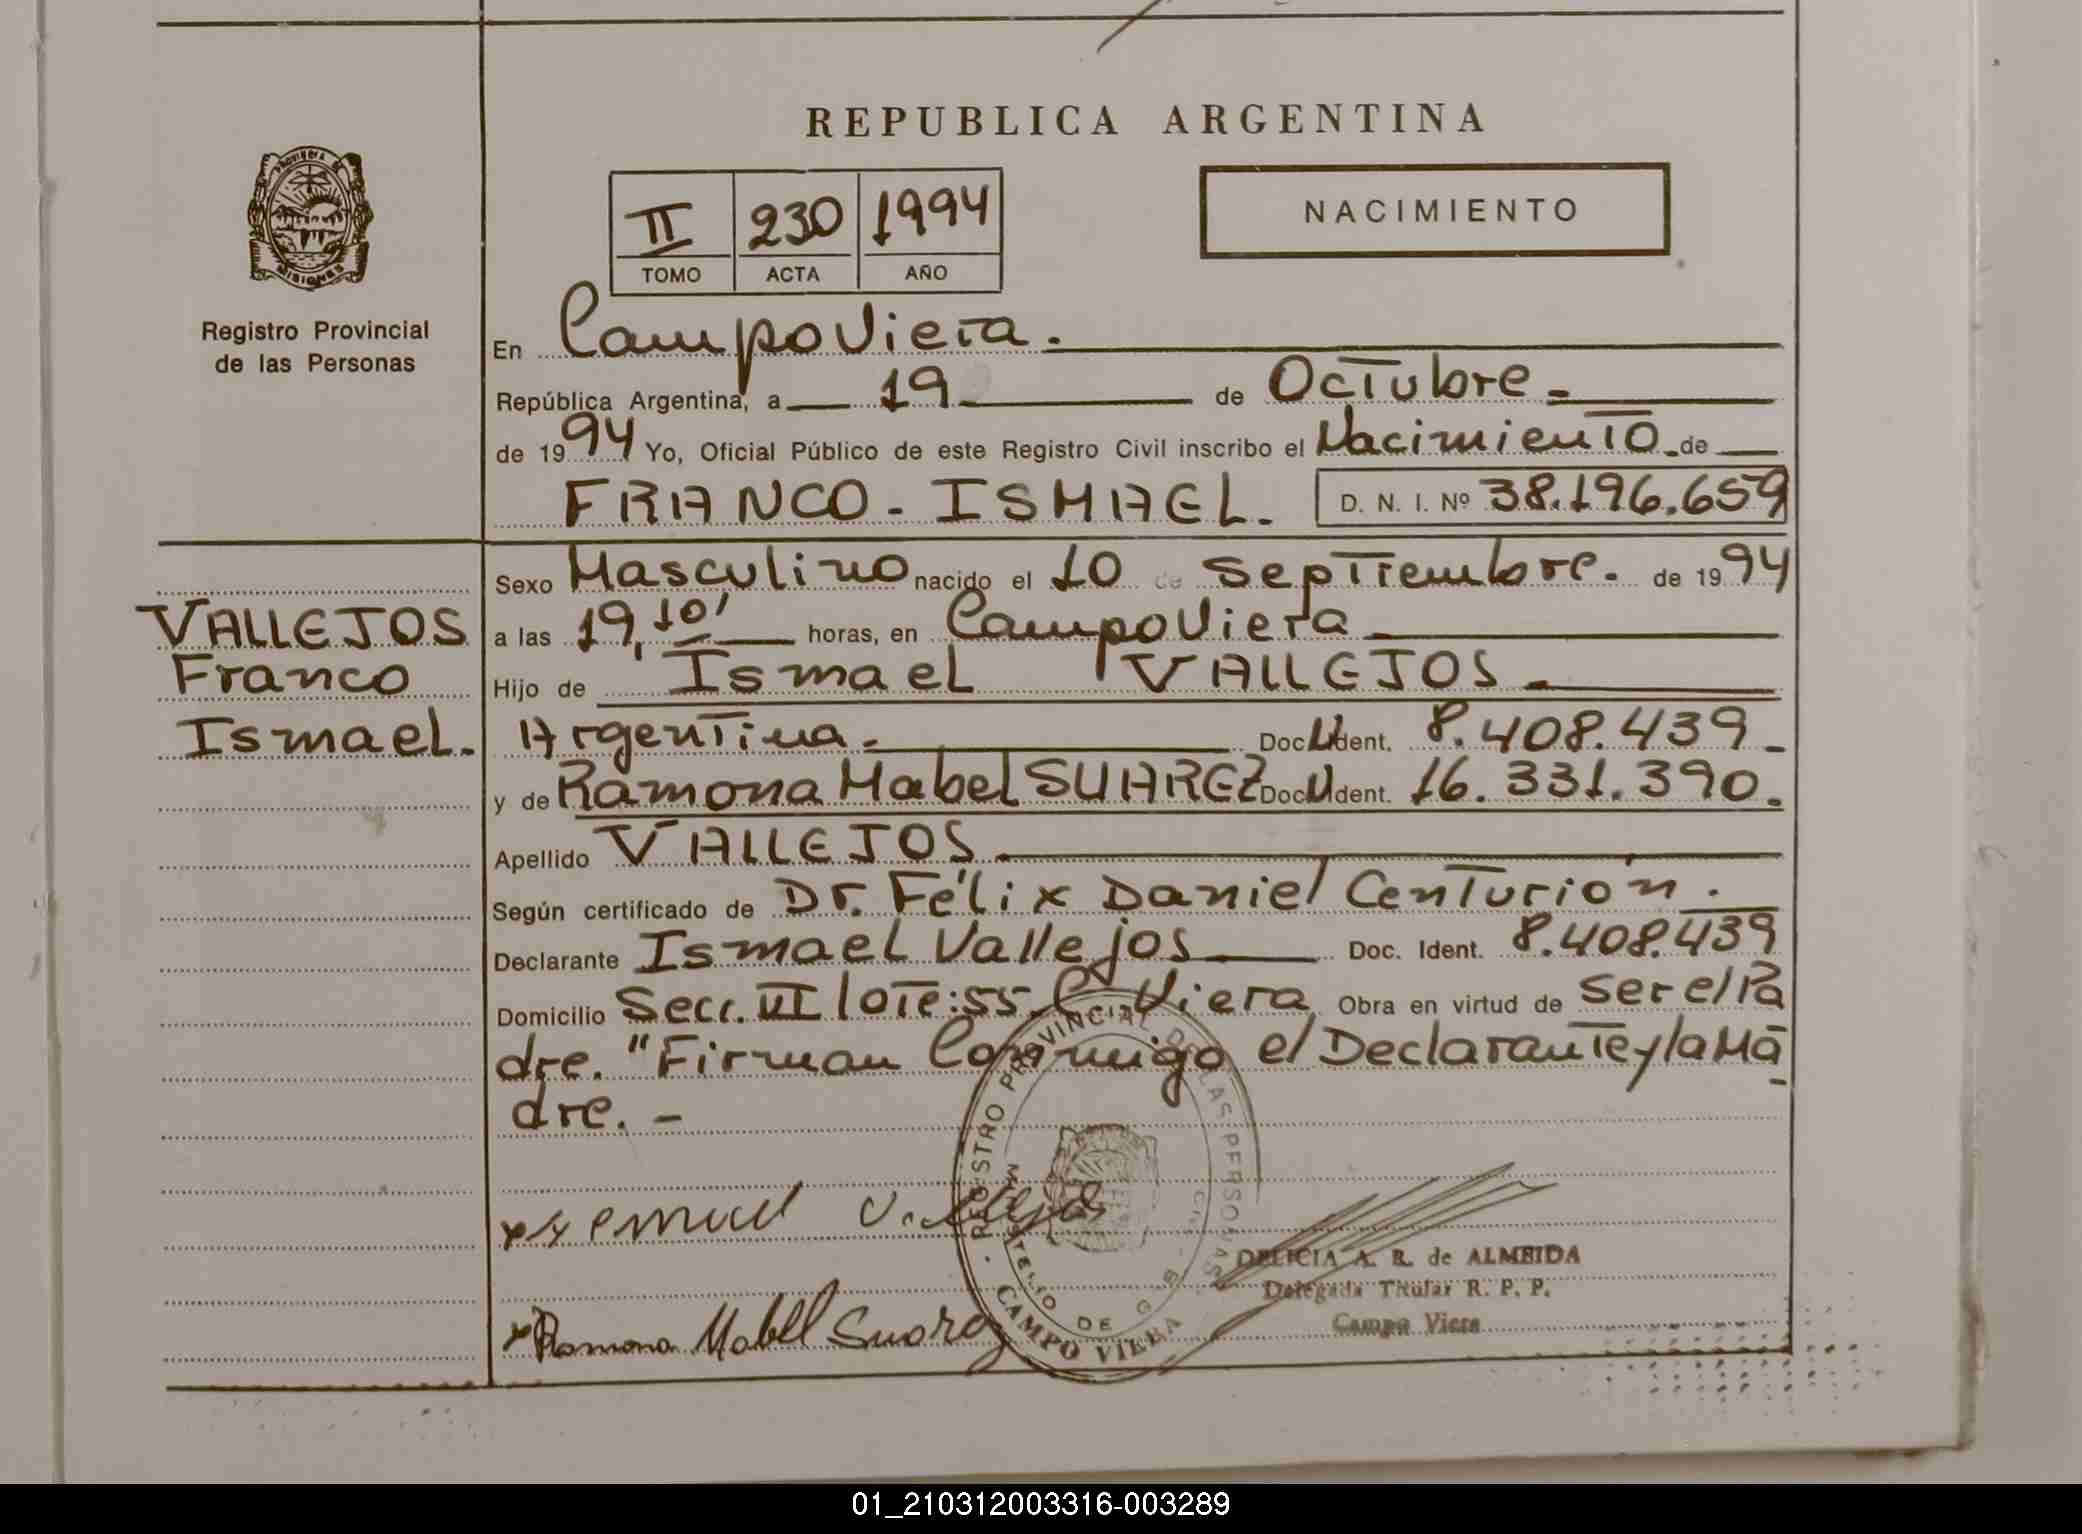 REPUBLICA ARGENTINA
PROVINCIA DE
MISIONES
Registro Provincial
de las Personas
II 230 1994
TOMO ACTA AÑO
NACIMIENTO
En Campo Viera.
República Argentina, a 19 de Octubre
de 1994 Yo, Oficial Público de este Registro Civil inscribo el Nacimiento de
FRANCO - ISMAEL. D. N. I. Nº 38.196.659
VALLEJOS
Franco
Ismael.
Sexo Masculino nacido el 10 de septiembre. de 1994
a las 19,10' horas, en Campo Viera
Hijo de Ismael VALLEJOS.
Argentina. Doc. Ident. 8.408.439
y de Ramona Mabel SUAREZ Doc. Ident. 16.331.390.
Apellido VALLEJOS.
Según certificado de Dr. Félix Daniel Centurión.
Declarante Ismael Vallejos Doc. Ident. 8.408.439
Domicilio Secc. VI lote: 55. C. Viera Obra en virtud de ser el Pa
dre. "Firman Conmigo el Declarante y la Ma
dre. -
REGISTRO PROVINCIAL DE LAS PERSONAS
MINISTERIO DE G.
CAMPO VIERA
x Ismael Vallejos
x Ramona Mabel Suarez
DELICIA A. R. de ALMEIDA
Delegada Titular R. P. P.
Campo Viera
01_210312003316-003289